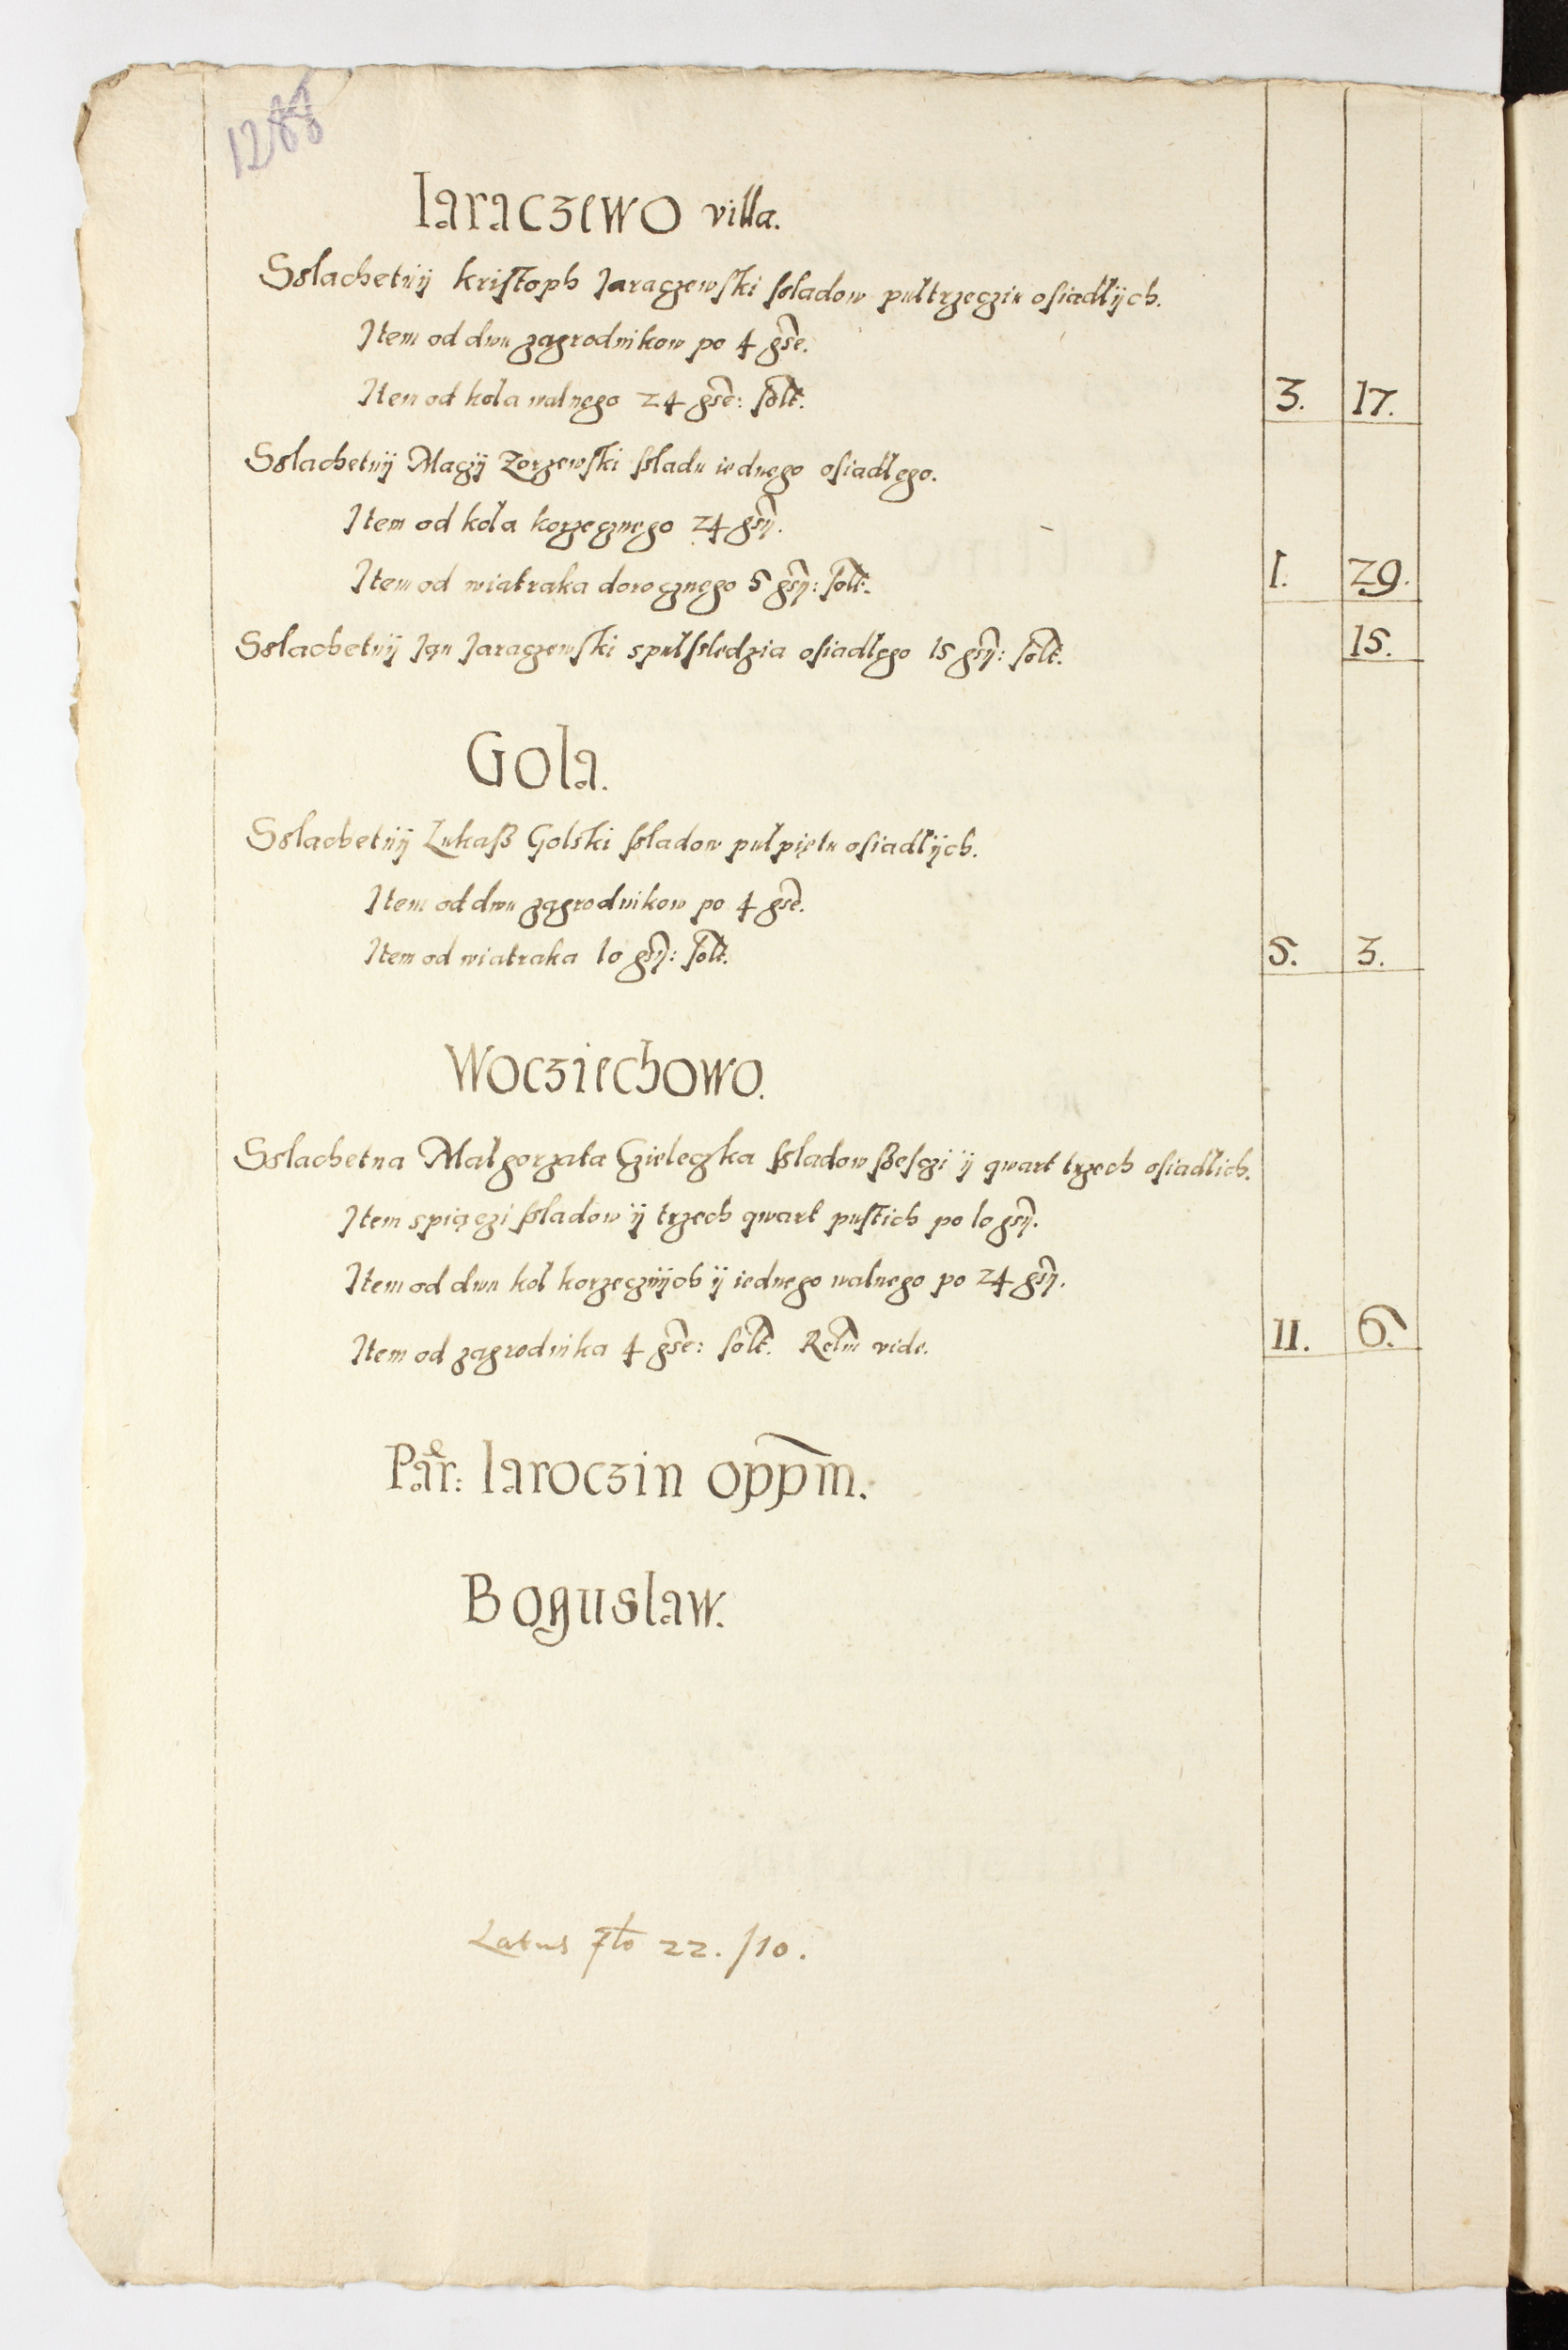 Iaraczewo villa.
Sslachetnÿ Kristoph Jaraczewski ssladow pułtrzeczia osiadłÿch.
Item od dwu zagrodnikow po 4 gse.
Item od kola walnego 24 gse: solt. 3. 17.
Sslachetnÿ Maczÿ Zorzewski ssladu iednego osiadłego.
Item od kola korzecznego 24 gsÿ.
Item od wiatraka dorocznego 5 gsÿ: solt. 1. 29.
Sslachetnÿ Jan Jaraczewski spułssledzia osiadłego 15 gsÿ: solt. 15.
Gola.
Sslachetnÿ Lukaß Golski ssladow pułpiętu osiadłÿch.
Item od dwu zagrodnikow po 4 gse.
Item od wiatraka 10 gsÿ: solt. 5. 3.
Wocziechowo.
Sslachetna Małgorzata Czieleczka ssladow ßesczi ÿ qwart trzech osiadlich.
Item spiączi ssladow ÿ trzech qwart pustich po 10 gsÿ.
Item od dwu koł korzecznÿch ÿ iednego walnego po 24 gsÿ.
Item od zagrodnika 4 gse: solt. Retm vide. 11. 6.
Par: Iaroczin oppm.
Boguslaw.
Latus flo 22. /10.